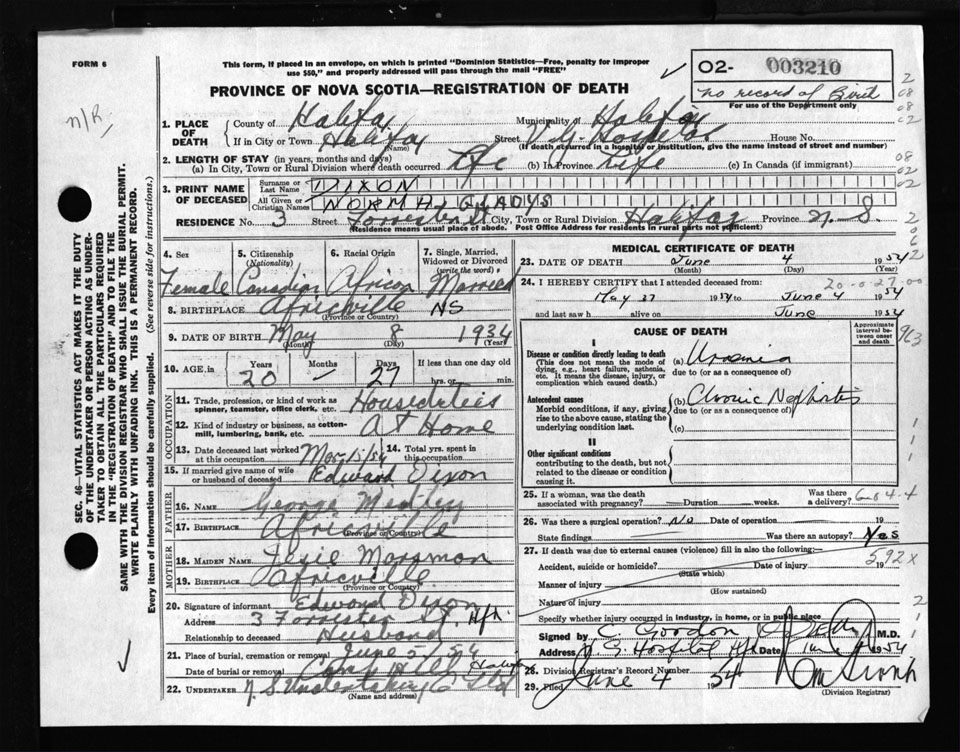 FORM 6
This form, if placed in an envelope, on which is printed "Dominion Statistics—Free, penalty for improper
use $50," and properly addressed will pass through the mail "FREE"
02- 003210
no record of Birth
For use of the Department only
PROVINCE OF NOVA SCOTIA—REGISTRATION OF DEATH
N/R
SEC. 46—VITAL STATISTICS ACT MAKES IT THE DUTY
OF THE UNDERTAKER OR PERSON ACTING AS UNDER-
TAKER TO OBTAIN ALL THE PARTICULARS REQUIRED
IN THE "REGISTRATION OF DEATH" AND TO FILE THE
SAME WITH THE DIVISION REGISTRAR WHO SHALL ISSUE THE BURIAL PERMIT.
WRITE PLAINLY WITH UNFADING INK. THIS IS A PERMANENT RECORD.
Every item of information should be carefully supplied. (See reverse side for instructions.)
1. PLACE OF DEATH County of Halifax Municipality of Halifax
If in City or Town Halifax Street V.G. Hospital House No.
(Name) (If death occurred in a hospital or institution, give the name instead of street and number)
2. LENGTH OF STAY (in years, months and days)
(a) In City, Town or Rural Division where death occurred Life (b) In Province Life (c) In Canada (if immigrant)
3. PRINT NAME OF DECEASED Surname or Last Name DIXON
All Given or Christian Names NORMA GLADYS
RESIDENCE No. 3 Street Forrester St City, Town or Rural Division Halifax Province N.S.
(Residence means usual place of abode. Post Office Address for residents in rural parts not sufficient)
4. Sex 5. Citizenship (Nationality) 6. Racial Origin 7. Single, Married, Widowed or Divorced (write the word)
Female Canadian African Married
8. BIRTHPLACE Africville NS
(Province or Country)
9. DATE OF BIRTH May 8 1934
(Month) (Day) (Year)
10. AGE in Years Months Days If less than one day old
20 27 hrs. or min.
OCCUPATION
11. Trade, profession, or kind of work as spinner, teamster, office clerk, etc. Houseduties
12. Kind of industry or business, as cotton-mill, lumbering, bank, etc. At Home
13. Date deceased last worked at this occupation 14. Total yrs. spent in this occupation
15. If married give name of wife or husband of deceased Edward Dixon
FATHER
16. NAME George
17. BIRTHPLACE Africville
(Province or Country)
MOTHER
18. MAIDEN NAME
19. BIRTHPLACE Africville
(Province or Country)
20. Signature of informant Edward Dixon
Address 3 Forrester St. Hfx.
Relationship to deceased Husband
21. Place of burial, cremation or removal
Date of burial or removal June 5/54
Camp Hill Halifax
22. UNDERTAKER N.S. Undertaking Co Ltd
(Name and address)
MEDICAL CERTIFICATE OF DEATH
23. DATE OF DEATH June 4 1954
(Month) (Day) (Year)
20-0-27-00
24. I HEREBY CERTIFY that I attended deceased from:
May 27 1954 to June 4 1954
and last saw h alive on June 1954
CAUSE OF DEATH
Approximate interval between onset and death
I
Disease or condition directly leading to death
(This does not mean the mode of dying, e.g., heart failure, asthenia, etc. It means the disease, injury, or complication which caused death.)
(a) Uraemia
due to (or as a consequence of)
Antecedent causes
Morbid conditions, if any, giving rise to the above cause, stating the underlying condition last.
(b) Chronic Nephritis
due to (or as a consequence of)
(c)
II
Other significant conditions
contributing to the death, but not related to the disease or condition causing it.
25. If a woman, was the death associated with pregnancy? Duration weeks. Was there a delivery?
26. Was there a surgical operation? No Date of operation 19
State findings Was there an autopsy? Yes
27. If death was due to external causes (violence) fill in also the following:
592X
Accident, suicide or homicide? Date of injury 19
(State which)
Manner of injury
(How sustained)
Nature of injury
Specify whether injury occurred in industry, in home, or in public place
Signed by C Gordon M.D.
Address V.G. Hospital Hfx Date June 4 1954
28. Division Registrar's Record Number
29. Filed June 4 1954
(Division Registrar)